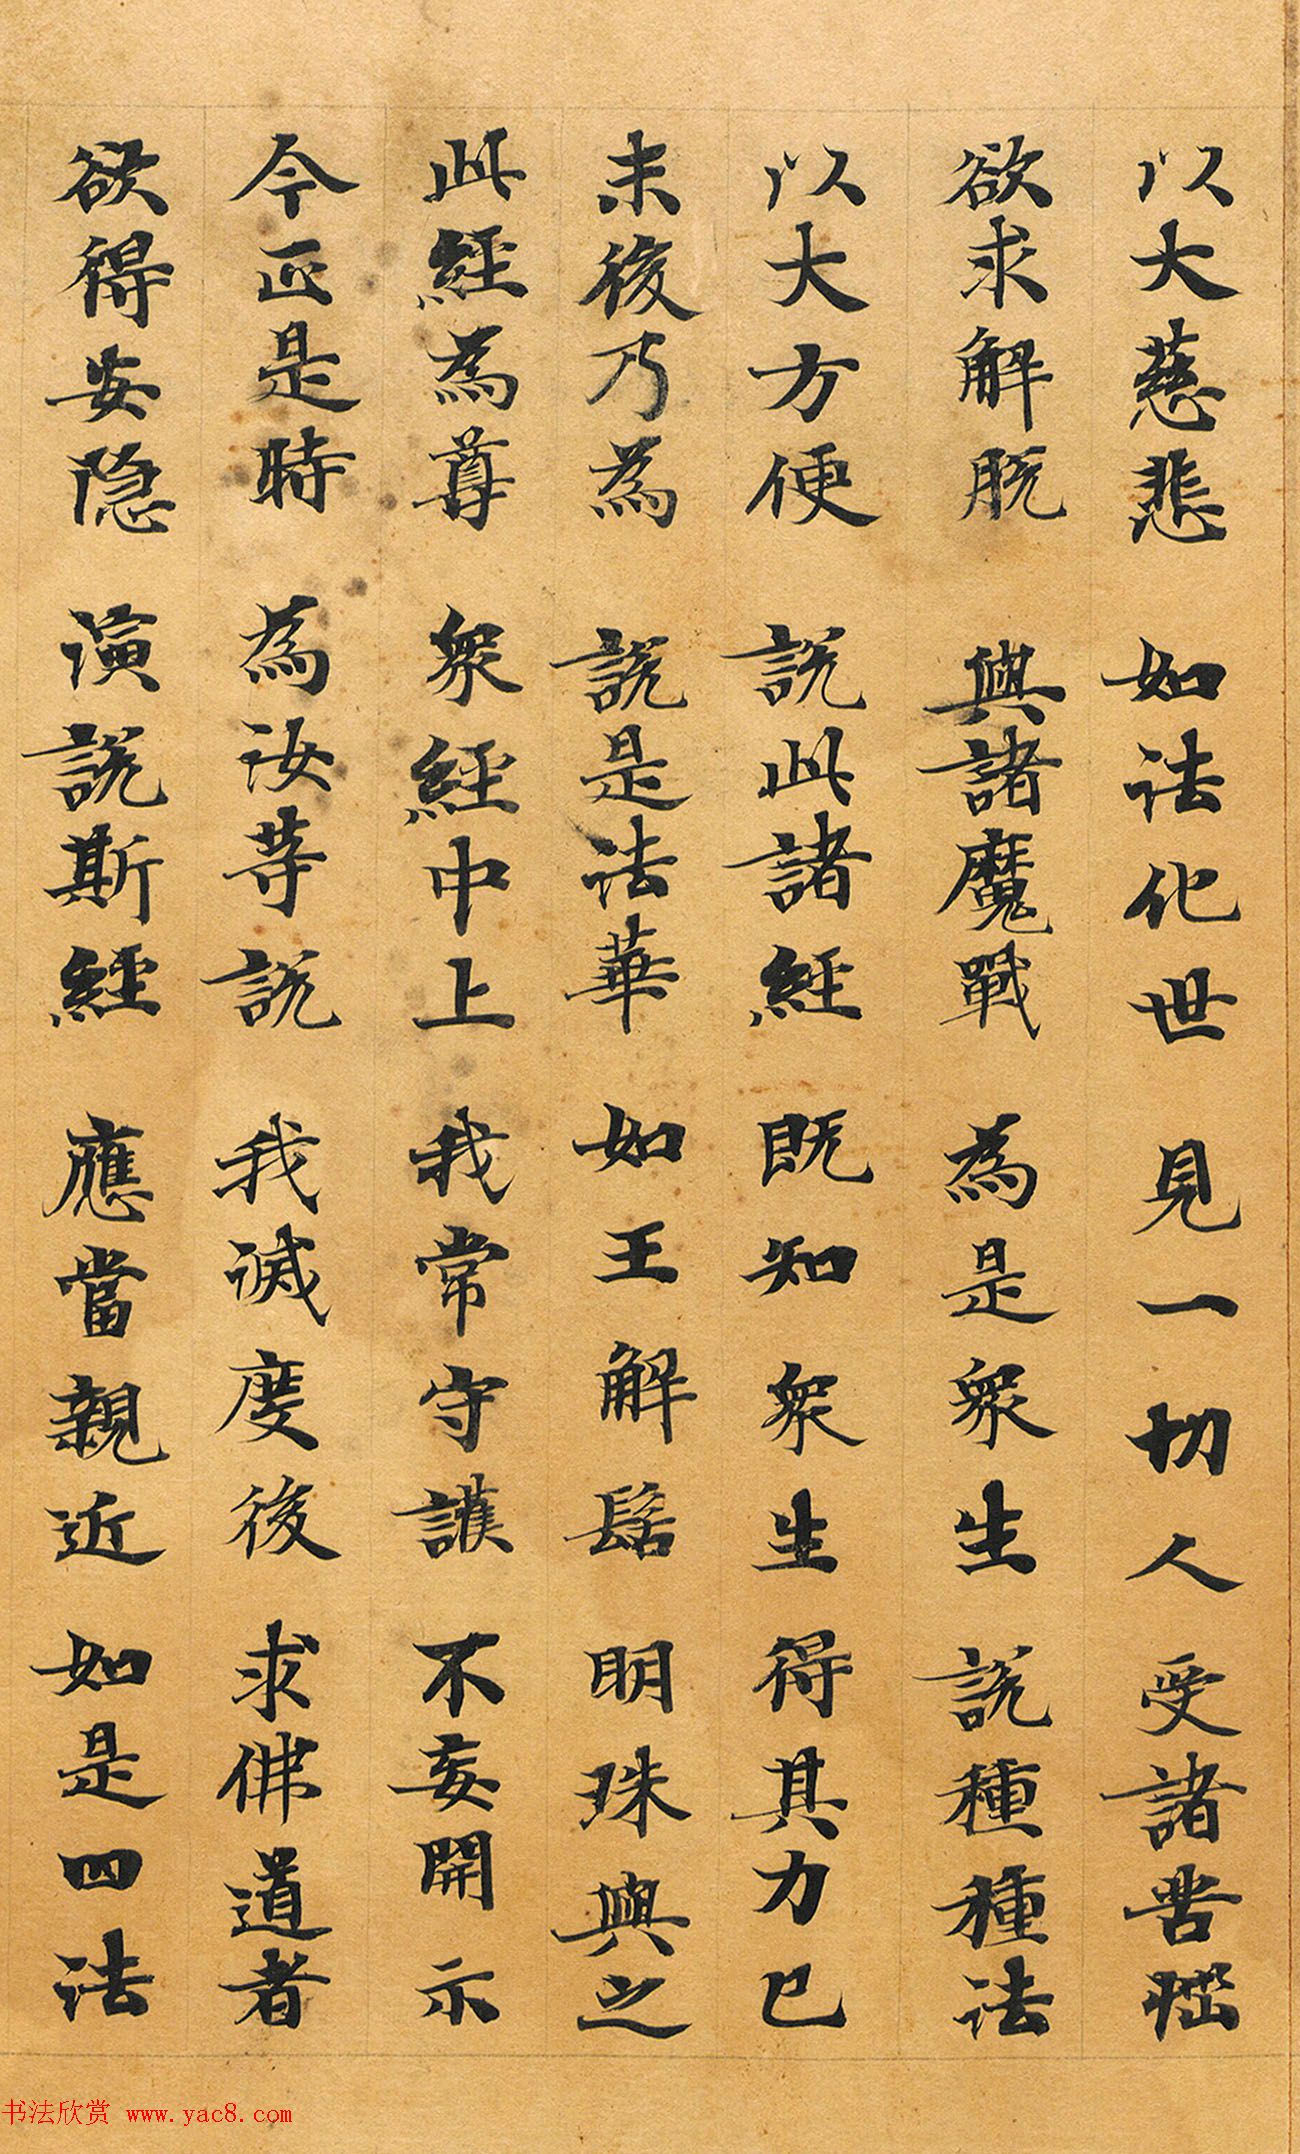 以大慈悲 如法化世 見一切人 受諸苦惱
欲求解脫 與諸魔戰 為是衆生 說種種法
以大方便 說此諸經 既知衆生 得其力已
末後乃為 說是法華 如王解髻 明珠與之
此經為尊 衆經中上 我常守護 不妄開示
今正是時 為汝等說 我滅度後 求佛道者
欲得安隐 演說斯經 應當親近 如是四法
书法欣赏 www.yac8.com